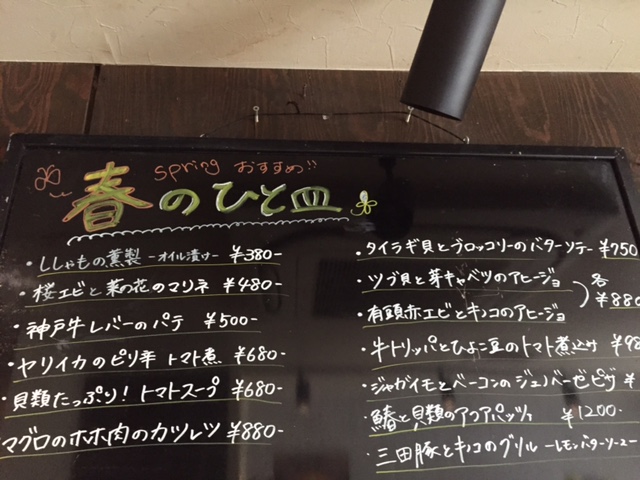 spring おすすめ!!
春のひと皿
・ししゃもの薫製 -オイル漬け- ¥380-
・桜エビと菜の花のマリネ ¥480-
・神戸牛レバーのパテ ¥500-
・ヤリイカのピリ辛 トマト煮 ¥680-
・貝類たっぷり!トマトスープ ¥680-
マグロのホホ肉のカツレツ ¥880-
・タイラギ貝とブロッコリーのバターソテー ¥950
・ツブ貝と芽キャベツのアヒージョ
・有頭赤エビとキノコのアヒージョ
各 ¥880
・牛トリッパとひよこ豆のトマト煮込み ¥98
・ジャガイモとベーコンのジェノベーゼピザ ¥
・鰆と貝類のアクアパッツァ ¥1200-
・三田豚とキノコのグリル -レモンバターソース-